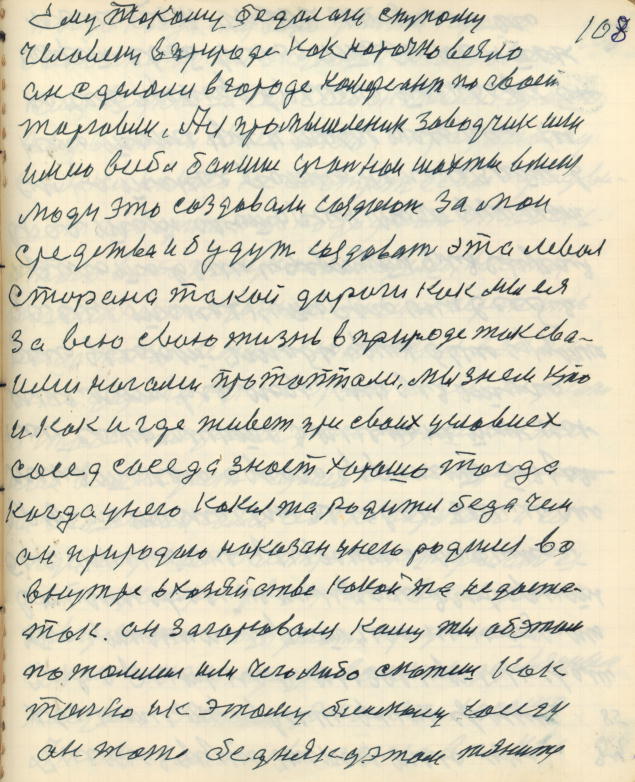 108
Ему такому бедолаги скупому
человеку в природе как нарочно везло
он сделал в городе по своей
торговли. А промышленик заводчик или
имио вшахты
люди это создовали создают за мои
средства и будут создоват эта левая
сторана такой дороги как мы ея
за всю свою жизнь в природе так сва-
ими ногами протоптали. мы знем кто
и как и где живет при своих условиех
сосед соседа знает хорошо тогда
когда унего какия та родитьи беда чем
он природаю наказан унего родился во
внутре вхозяйстве какой та недоста-
ток. он загаровался кашу жи обэтом
или чего либо скажиш как
только ик этому соседу
он тоже бедняк дэтом тянит